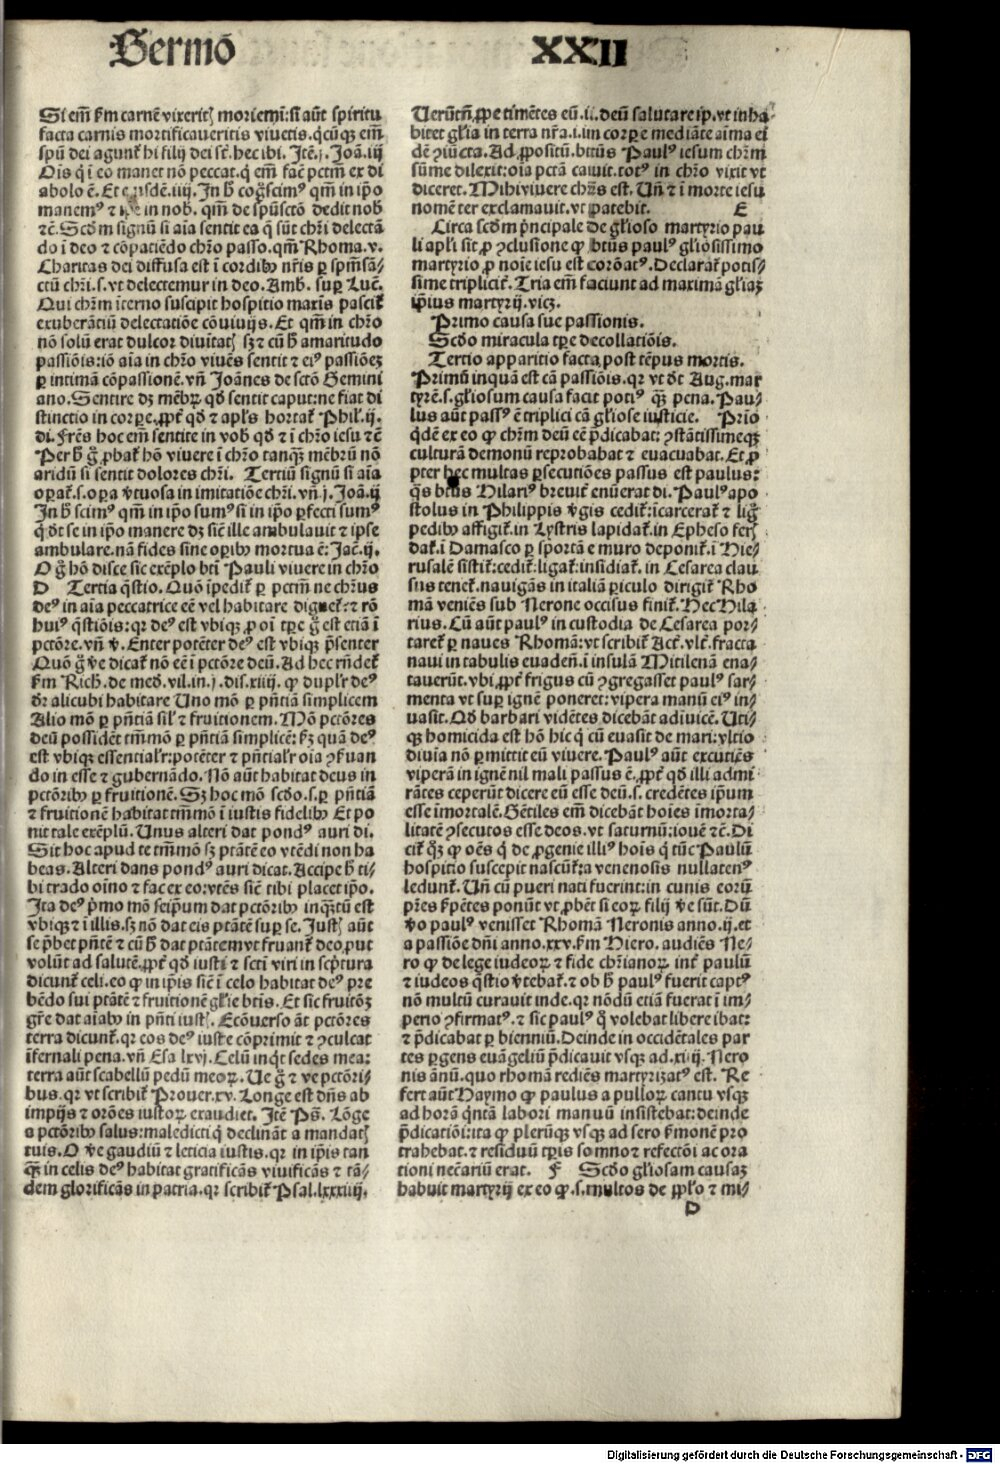 Sermō
XXII
Si em̄ ẜm carnē vixeritꝭ moriemī: si aūt spiritu
facta carnis mortificaveritis vivetis. qcūqꝫ em̄
spū dei agunt̄ hi filij dei st̄. hec ibi. Itē .j. Joā. iij
Ois q̄ ī eo manet nō peccat. q̄ em̄ facē pctm̄ ex di
abolo ē. Et eiusdē. iiij. In ħ cog̊scimꝰ qm̄ in ip̄o
manemꝰ ⁊ ip̄e in nob̄. qm̄ de spūsctō dedit nob̄
⁊c̄. Scd̄m signū si aīa sentit ea q̄ sūt chr̄i delectā
do ī deo ⁊ cōpatiēdo chr̄o passo. qm̄ Rhoma. v.
Charitas dei diffusa est ī cordibꝰ nr̄is ꝑ spm̄sā-
ctū chr̄i. s. vt delectemur in deo. Amb. suꝑ Luc̄.
Qui chr̄m īterno suscipit hospitio maxīs pascit̄
exuberātiū delectatiōe cōvivijs. Et qm̄ in chr̄o
nō solū erat dulcor divitatꝭ sꝫ ⁊ cū ħ amaritudo
passiōis: iō aīa in chr̄o vivēs sentit ⁊ eiꝰ passiōeꝫ
ꝑ intimā cōpassionē. vn̄ Joānes de sctō Gemini
ano. Sentire dꝫ mēbꝝ qd̄ sentit caput: ne fiat di
stinctio in corꝑe. ꝓpt̄ qd̄ ⁊ apl̄s hortat̄ Phil̄. ij.
di. Frēs hoc em̄ sentite in vob̄ qd̄ ⁊ ī chr̄o iesu ⁊c̄
Per ħ g̊ ꝓbat̄ hō vivere ī chr̄o tanqꝫ mēbrū nō
aridū si sentit dolores chr̄i. Tertiū signū si aīa
oꝑat̄. s. oꝑa v̄tuosa in imitatiōe chr̄i. vn̄ .j. Joā. ij
In ħ scimꝰ qm̄ in ip̄o sumꝰ si in ip̄o ꝑfecti sumꝰ
q̄ dt̄ se in ip̄o manere dꝫ sic̄ ille ambulavit ⁊ ipse
ambulare. nā fides sine oꝑibꝰ mortua ē: Jac̄. ij.
O g̊ hō disce sic exēplo bt̄i Pauli vivere in chr̄o
D Tertia q̄stio. Quō īpedit̄ ꝑ pctm̄ ne chr̄us
deꝰ in aīa peccatrice eē vel habitare dignet̄: ⁊ rō
huiꝰ q̄stiōis: qr deꝰ est vbiqꝫ ꝓ oī tp̄e g̊ est etiā ī
pctōre. vn̄ v̄. Enter potēter deꝰ est vbiqꝫ p̄senter
Quō g̊ v̄e dicat̄ nō eē ī pctōre deū. Ad hec rn̄det̄
ẜm Rich̄. de med̄. vil. in .j. dis. xiiij. ꝙ dupl̄r deꝰ
dr̄ alicubi habitare Uno mō ꝑ pn̄tiā simplicem
Alio mō ꝑ pn̄tiā sil̄ ⁊ fruitionem. Mō pctōres
deū possidēt tm̄mō ꝑ pn̄tiā simplicē: ẜꝫ quā deꝰ
est vbiqꝫ essential̄r: potēter ⁊ pn̄tial̄r oīa ꝯẜuan
do in esse ⁊ gubernādo. Nō aūt habitat deus in
pctōribꝰ ꝑ fruitionē. Sꝫ hoc mō scd̄o. s. ꝑ pn̄tiā
⁊ fruitionē habitat tm̄mō ī iustis fidelibꝰ Et po
nit tale exēplū. Unus alteri dat pondꝰ auri di.
Sit hoc apud te tm̄mō sꝫ ptātē eo vtēdi non ha
beas. Alteri dans pondꝰ auri dicat. Accipe ħ ti-
bi trado oīno ⁊ fac ex eo: vtēs sic̄ tibi placet ip̄o.
Ita deꝰ p̄mo mō seipūm dat pctōribꝰ inqꝫtū est
vbiqꝫ ⁊ ī illis. sꝫ nō dat eis ptātē suꝑ se. Justꝭ aūt
se p̄bet pn̄tē ⁊ cū ħ dat ptātem vt fruant̄ deo, ꝓut
volūt ad salutē. ꝓpt̄ qd̄ iusti ⁊ sctī viri in scp̄tura
dicunt̄ celi. eo ꝙ in ip̄is sic̄ ī celo habitat deꝰ pre
bēdo sui ptātē ⁊ fruitionē gl̄ie bt̄is. Et sic fruitōꝫ
gr̄e dat aīabꝰ in pn̄ti iustꝭ. Ecōverso āt pctōres
terra dicunt̄. qr eos deꝰ iuste cōprimit ⁊ ꝯculcat
īfernali pena. vn̄ Esa lxvj. Celū inq̄t sedes mea:
terra aūt scabellū pedū meoꝝ. Ve g̊ ⁊ ve pctōri-
bus. qr vt scribit̄ Prover. xv. Longe est dn̄s ab
impijs ⁊ orōes iustoꝝ exaudiet. Itē Ps̄. Lōge
a pctōribꝰ salus: maledicti q̄ declināt a mandatꝭ
tuis. O v̄e gaudiū ⁊ leticia iustis. qr in ip̄is tan
qꝫ in celis deꝰ habitat gratificās vivificās ⁊ tā-
dem glorificās in patria. qr scribit̄ Psal. lxxxiiij.
Verūtn̄ ꝓpe timētes eū .ii. deū salutare ip̄. vt inha-
bitet gl̄ia in terra nr̄a. i. im corꝑe mediāte aīma ei
dē ꝯiūcta. Ad ꝓpositū. bt̄us Paulꝰ iesum chr̄m
sūme dilexit: oīa pctā cavit. totꝰ in chr̄o vixit vt
diceret. Mihi vivere chr̄s est. Un̄ ⁊ ī morte iesu
nomē ter exclamavit. vt patebit. E
Circa scd̄m p̄ncipale de gl̄ioso martyrio pau
li apl̄i sit ꝓ ꝯclusione ꝙ bt̄us paulꝰ gl̄iosissimo
martyrio ꝓ noīe iesu est corōatꝰ. Declarat̄ potis-
sime triplicit̄. Tria em̄ faciunt ad maximā gl̄iaꝫ
ip̄ius martyrij. vicꝫ.
Primo causa sue passionis.
Scd̄o miracula tp̄e decollatiōis.
Tertio apparitio facta post tēpus mortis.
Primū inquā est cā passiōis. qr vt dt̄ Aug. mar
tyrē. s. gl̄iosum causa facit potiꝰ qꝫ pena. Pau-
lus aūt passꝰ ē triplici cā gl̄iose iusticie. Prīo
qdē ex eo ꝙ chr̄m deū eē p̄dicabat: ꝯstātissimeqꝫ
culturā demonū reprobabat ⁊ evacuabat. Et ꝓ
pter hec multas ꝑsecutiōes passus est paulus:
q̄s bt̄us Hilariꝰ brevit̄ enūerat di. Paulꝰ apo
stolus in Philippis v̄gis cedit̄: īcarcerat̄ ⁊ lig̊
pedibꝰ affigit̄. in Lystris lapidat̄. in Epheso ferꝭ
dat̄. ī Damasco ꝑ sportā e muro deponit̄. ī Hie-
rusalē sistit̄: cedit̄: ligat̄: insidiat̄. in Cesarea clau
sus tenet̄. navigās in italiā ꝑiculo dirigit̄ Rho
mā veniēs sub Nerone occisus finit̄. Hec Hila
rius. Cū aūt paulꝰ in custodia de Cesarea por-
taret̄ ꝑ naves Rhomā: vt scribit̄ Act̄. vlt̄. fracta
navi in tabulis evadēn̄. ī insulā Mitilenā ena-
taverūt. vbi, ꝓpt̄ frigus cū ꝯgregasset paulꝰ sar-
menta vt suꝑ ignē poneret: vipera manū eiꝰ in-
vasit. Qd̄ barbari vidētes dicebāt adīvicē. Uti-
qꝫ homicida est hō hic q̄ cū evasit de mari: vltio
divīa nō ꝑmittit eū vivere. Paulꝰ aūt excutiēs
viperā in ignē nil mali passus ē. ꝓpt̄ qd̄ illi admī
rātes ceperūt dicere eū esse deū. s. credētes ip̄um
esse īmortalē. Gētiles em̄ dicebāt hoīes īmorta-
litatē ꝯsecutos esse deos. vt saturnū: iovē ⁊c̄. Di
cit̄ qꝫ ꝙ oēs q̄ de ꝓgenie illiꝰ hoīs q̄ tūc Paulū
hospitio suscepit nascunt̄: a venenosis nullatenꝰ
ledunt̄. Un̄ cū pueri nati fuerint: in cunis eorū
pr̄es ẜpētes ponūt vt ꝓbēt si eoꝝ filij v̄e sūt. Dū
v̄o paulꝰ venisset Rhomā Neronis anno. ij. et
a passiōe dn̄i anno. xxv. ẜm Hiero. audiēs Ne-
ro ꝙ de lege iudeoꝝ ⁊ fide chr̄ianoꝝ int̄ paulū
⁊ iudeos q̄stio v̄tebat̄. ⁊ ob ħ paulꝰ fuerit captꝰ
nō multū curavit inde. qr nōdū etiā fuerat ī im-
perio ꝯfirmatꝰ. ⁊ sic paulꝰ q̊ volebat libere ibat:
⁊ p̄dicabat ꝑ bienniū. Deinde in occidētales par
tes ꝑgens evāgeliū p̄dicavit vsqꝫ ad. xiiij. Nero
nis ānū. quo rhomā rediēs martyrizatꝰ est. Re
fert aūt Haymo ꝙ paulus a pulloꝝ cantu vsqꝫ
ad horā q̄ntā labori manuū insistebat: deinde
p̄dicatiōi: ita ꝙ plerūqꝫ vsqꝫ ad sero ẜmonē pro
trahebat. ⁊ residuū tp̄is somno ⁊ refectōi ac ora
tioni nec̄ariū erat. F Scd̄o gl̄iosam causaꝫ
habuit martyrij ex eo ꝙ. s. multos de pp̄lo ⁊ mi-
D
Digitalisierung gefördert durch die Deutsche Forschungsgemeinschaft - DFG